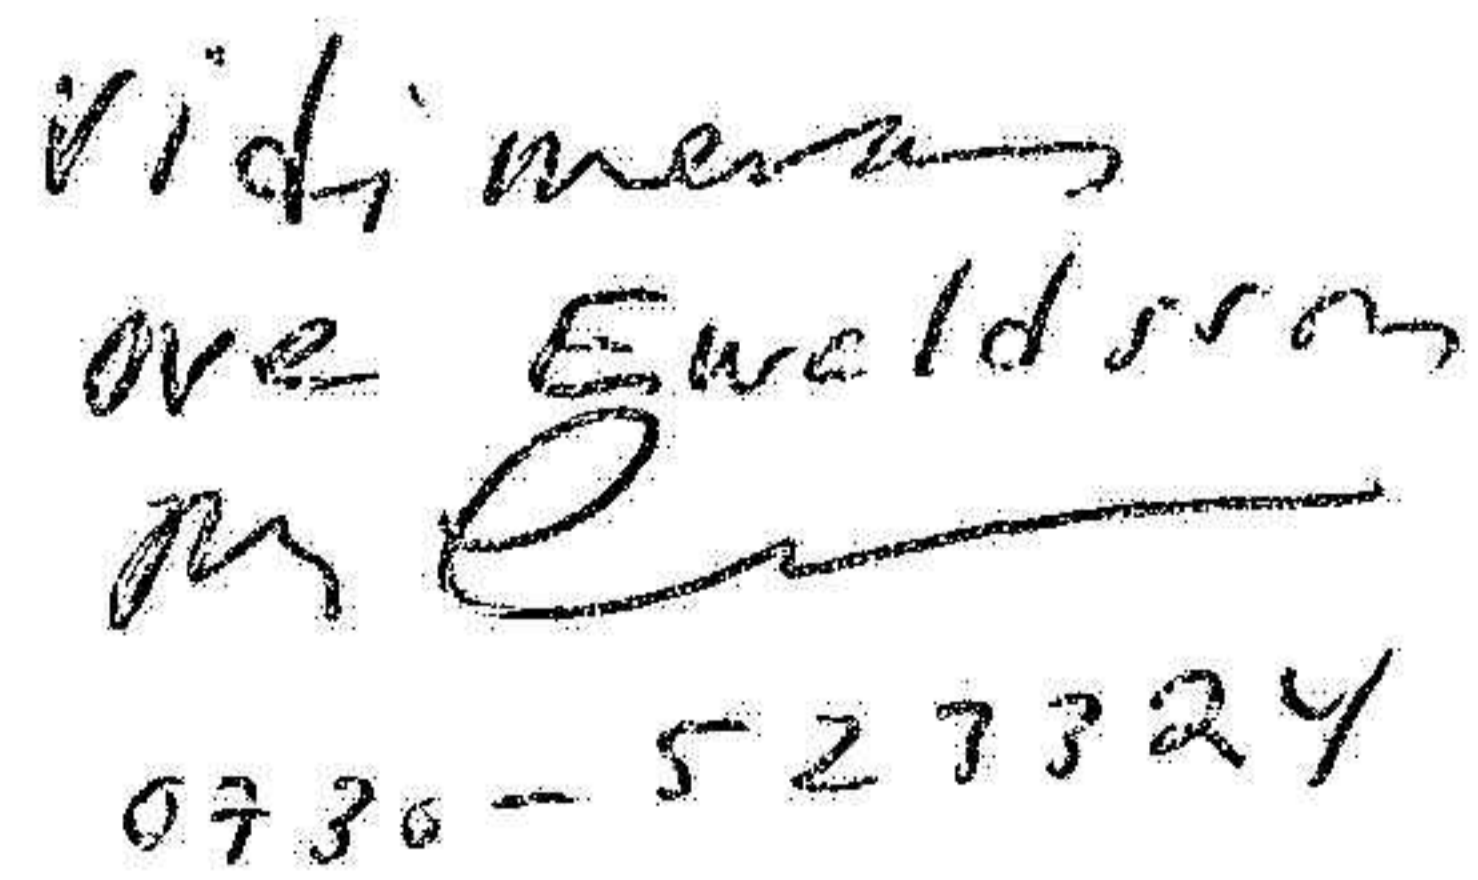 Vidimeras
Ove Ewaldsson
0730-523324